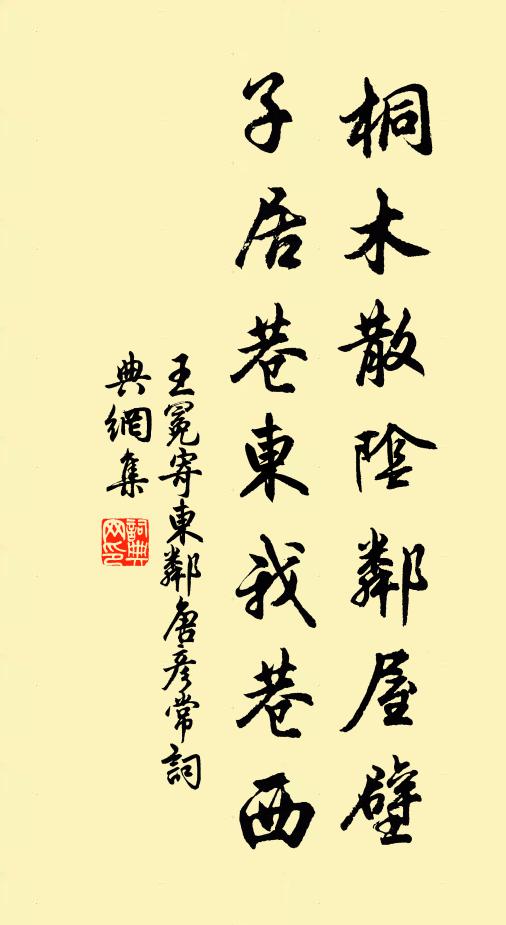 桐木散陰鄰屋壁
子居巷東我巷西
王冕寄東鄰唐彥常詞
典網集
詞典
网印